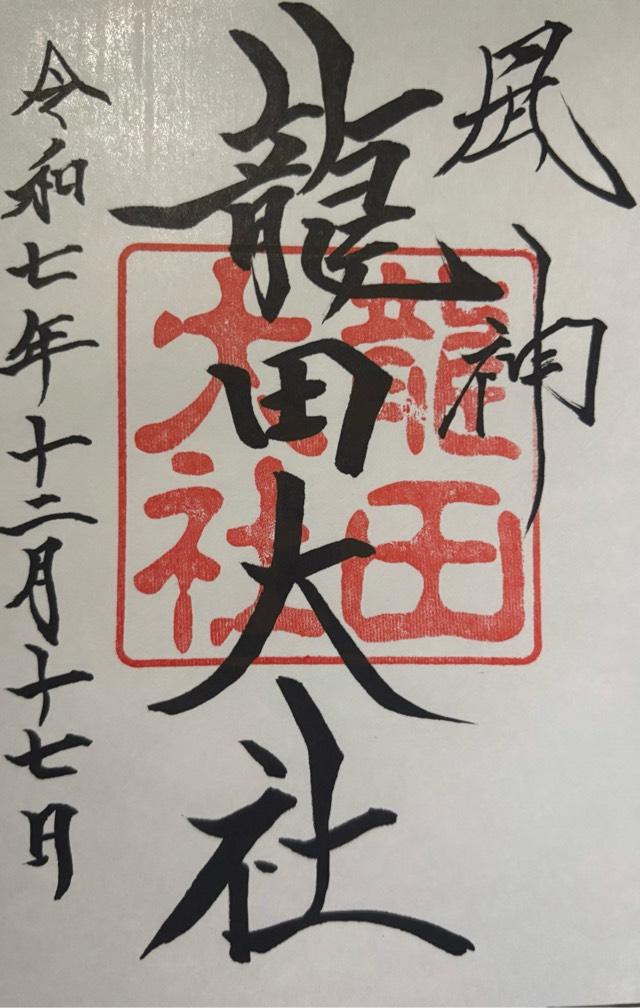 風神
龍田大社
龍田
大社
令和七年十二月十七日